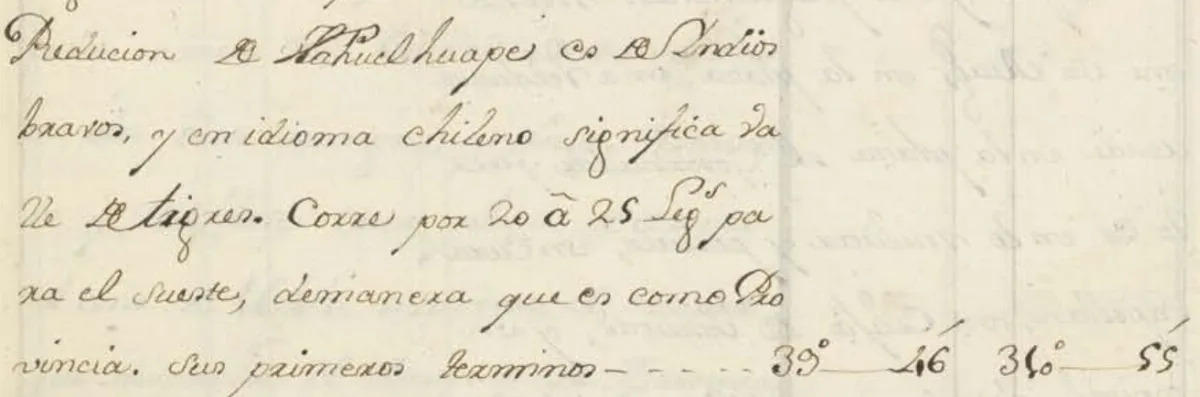 Reducion de Nahuelhuape es de Yndios
bravos, y en idioma chileno significa Va
lle de tigres. Corre por 20 â 25 Legs pa
ra el sueste, demanera que es como Pro
vincia. sus primeros terminos - - - - - 39° 46´